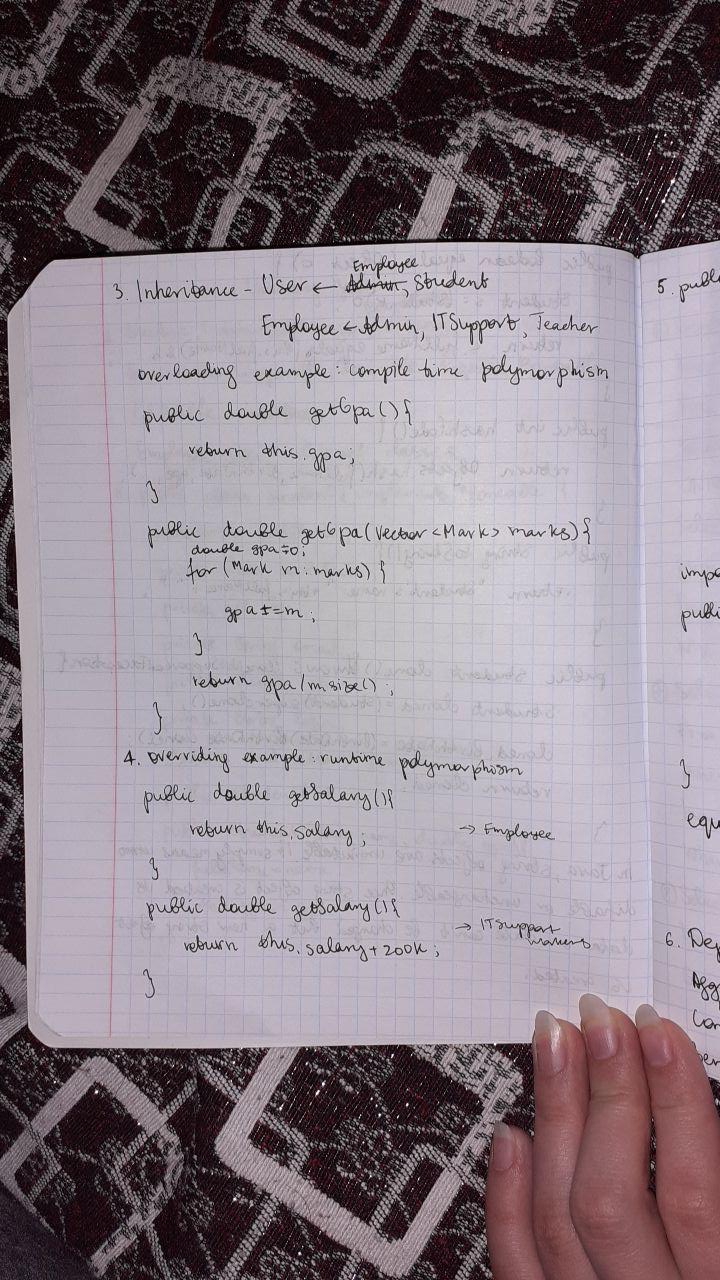 Employee
3. Inheritance - User ← Admin, Student
Employee ← Admin, ITSupport, Teacher
overloading example: compile time polymorphism
public double getGpa(){
return this.gpa;
}
public double getGpa(Vector <Mark> marks){
double gpa=0;
for (Mark m: marks) {
gpa+=m;
}
return gpa/m.size();
}
4. overriding example: runtime polymorphism
public double getSalary(){
return this.salary; → Employee
}
public double getSalary(){
return this.salary+200k; → ITSupport
}
5. publ
impo
publi
}
equ
6. De
Agg
Con